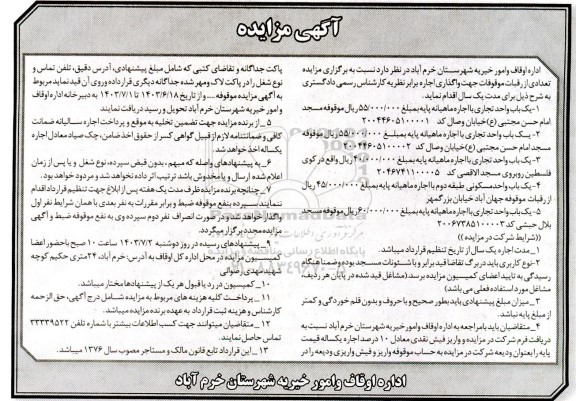 آگهی مزایده
اداره اوقاف وامور خیریه شهرستان خرم آباد در نظر دارد نسبت به برگزاری مزایده
تعدادی از رقبات موقوفات جهت واگذاری اجاره برابر نظریه کارشناس رسمی دادگستری
به شرح ذیل برای مدت یک سال اقدام نماید.
۱-یک باب واحد تجاری با اجاره ماهیانه پایه بمبلغ ۵۵/۰۰۰/۰۰۰ریال موقوفه مسجد
امام حسن مجتبی (ع)خیابان وصال کد ۲۰۰۴۴۶۰۵۱۰۰۰۰۱
۲-یک باب واحد تجاری با اجاره ماهیانه پایه بمبلغ ۵۵/۰۰۰/۰۰۰ریال موقوفه
مسجد امام حسن مجتبی (ع)خیابان وصال کد ۲۰۰۴۴۶۰۵۱۰۰۰۰۲
۳-یک باب واحد تجاری با اجاره ماهیانه پایه بمبلغ ۴۰/۰۰۰/۰۰۰ریال واقع در کوی
فلسطین روبروی مسجد الاقصی کد ۲۰۰۴۶۷۴۱۱۰۰۰۵
۴-یک باب واحد مسکونی طبقه دوم با اجاره ماهیانه پایه بمبلغ ۴۵/۰۰۰/۰۰۰ ریال
از رقبات موقوفه جهان آباد خیابان بزرگمهر
۵-یک باب واحد تجاری با اجاره ماهیانه پایه بمبلغ ۶۰/۰۰۰/۰۰۰ریال موقوفه مسجد
بلال حبشی کد۲۰۰۶۷۳۸۵۱۰۰۰۰۳
((شرایط شرکت در مزایده ))
۱_مدت اجاره یک سال از تاریخ تنظیم قرارداد میباشد.
۲-نوع کاربری باید در برگ تقاضا قید برابر و با شئونات مسجد بوده وضمنا هنگام
رسیدگی به تایید اعضای کمیسیون مزایده برسد (مشاغل قید شده در پایان هر ردیف،
مشاغل مورد استفاده فعلی می باشد)
۳_ میزان مبلغ پیشنهادی باید بطور صحیح و با حروف و بدون قلم خوردگی و کمتر
از مبلغ پایه نباشد.
۴_متقاضیان باید با مراجعه به اداره اوقاف و امور خیریه شهرستان خرم آباد نسبت به
دریافت فرم شرکت در مزایده و واریز فیش نقدی معادل ۱۰ درصد اجاره یکساله قیمت
پایه را بعنوان ودیعه شرکت در مزایده به حساب موقوفه واریز و فیش واریزی ودیعه را در
پاکت جداگانه و تقاضای کتبی که شامل مبلغ پیشنهادی، آدرس دقیق، تلفن تماس و
نوع شغل را در پاکت لاک ومهر شده جداگانه دیگری قرارداده وروی آن قید نماید مربوط
به آگهی مزایده موقوفه .... و از تاریخ ۱۴۰۳/۶/۱۸ تا ۱۴۰۳/۷/۱ به دبیرخانه اداره اوقاف
و امور خیریه شهرستان خرم آباد تحویل و رسید دریافت نمایند
۵_ از برنده مزایده جهت تضمین تخلیه به موقع و پرداخت اجاره سالیانه ضمانت
کافی و ضمانتنامه لازم از قبیل گواهی کسر از حقوق اخذ ضامن، چک صیاد معادل اجاره
یکساله اخذ خواهد شد.
۶_ به پیشنهادهای واصله که مبهم ،بدون فیش سپرده، نوع شغل و یا پس از زمان
اعلام شده ارسال و یا مخدوش باشد ترتیب اثر داده نخواهد شد و مردود خواهد بود.
۷_ چنانچه برنده مزایده ظرف مدت یک هفته پس از ابلاغ جهت تنظیم قرارداد اقدام
ننماید سپرده بنفع موقوفه ضبط و برابر مقررات به نفر بعدی با همان شرایط نفر اول
واگذار خواهد شد، در صورت انصراف نفر دوم سپرده وی به نفع موقوفه ضبط و آگهی
مزایده مجدد برگزار میگردد.
۹_ پیشنهادهای رسیده در روز دوشنبه ۱۴۰۳/۷/۲ ساعت ۱۰ صبح باحضور اعضا
کمیسیون مزایده در محل اداره کل اوقاف به آدرس: خرم آباد، ۲۴متری حکیم کوچه
شهید مهدی رضوانی
۱۰_کمیسیون در رد یا قبول هر یک از پیشنهادها مختار میباشد.
۱۱_ پرداخت کلیه هزینه های مربوط به مزایده شامل درج آگهی، حق الزحمه
کارشناس و هزینه ثبت قرارداد به عهده برنده مزایده میباشد.
۱۲_متقاضیان میتوانند جهت کسب اطلاعات بیشتر با شماره تلفن ۳۳۳۳۹۵۲۲
تماس حاصل نمایند.
۱۳_این قرارداد تابع قانون مالک و مستاجر مصوب سال ۱۳۷۶ میباشد.
اداره اوقاف وامور خیریه شهرستان خرم آباد